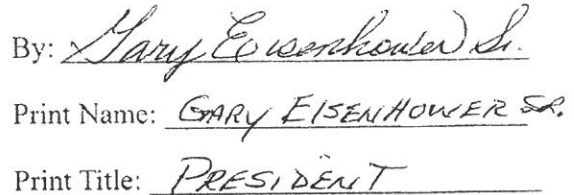 By: Gary Eisenhower Sr.
Print Name: GARY EISENHOWER SR.
Print Title: PRESIDENT